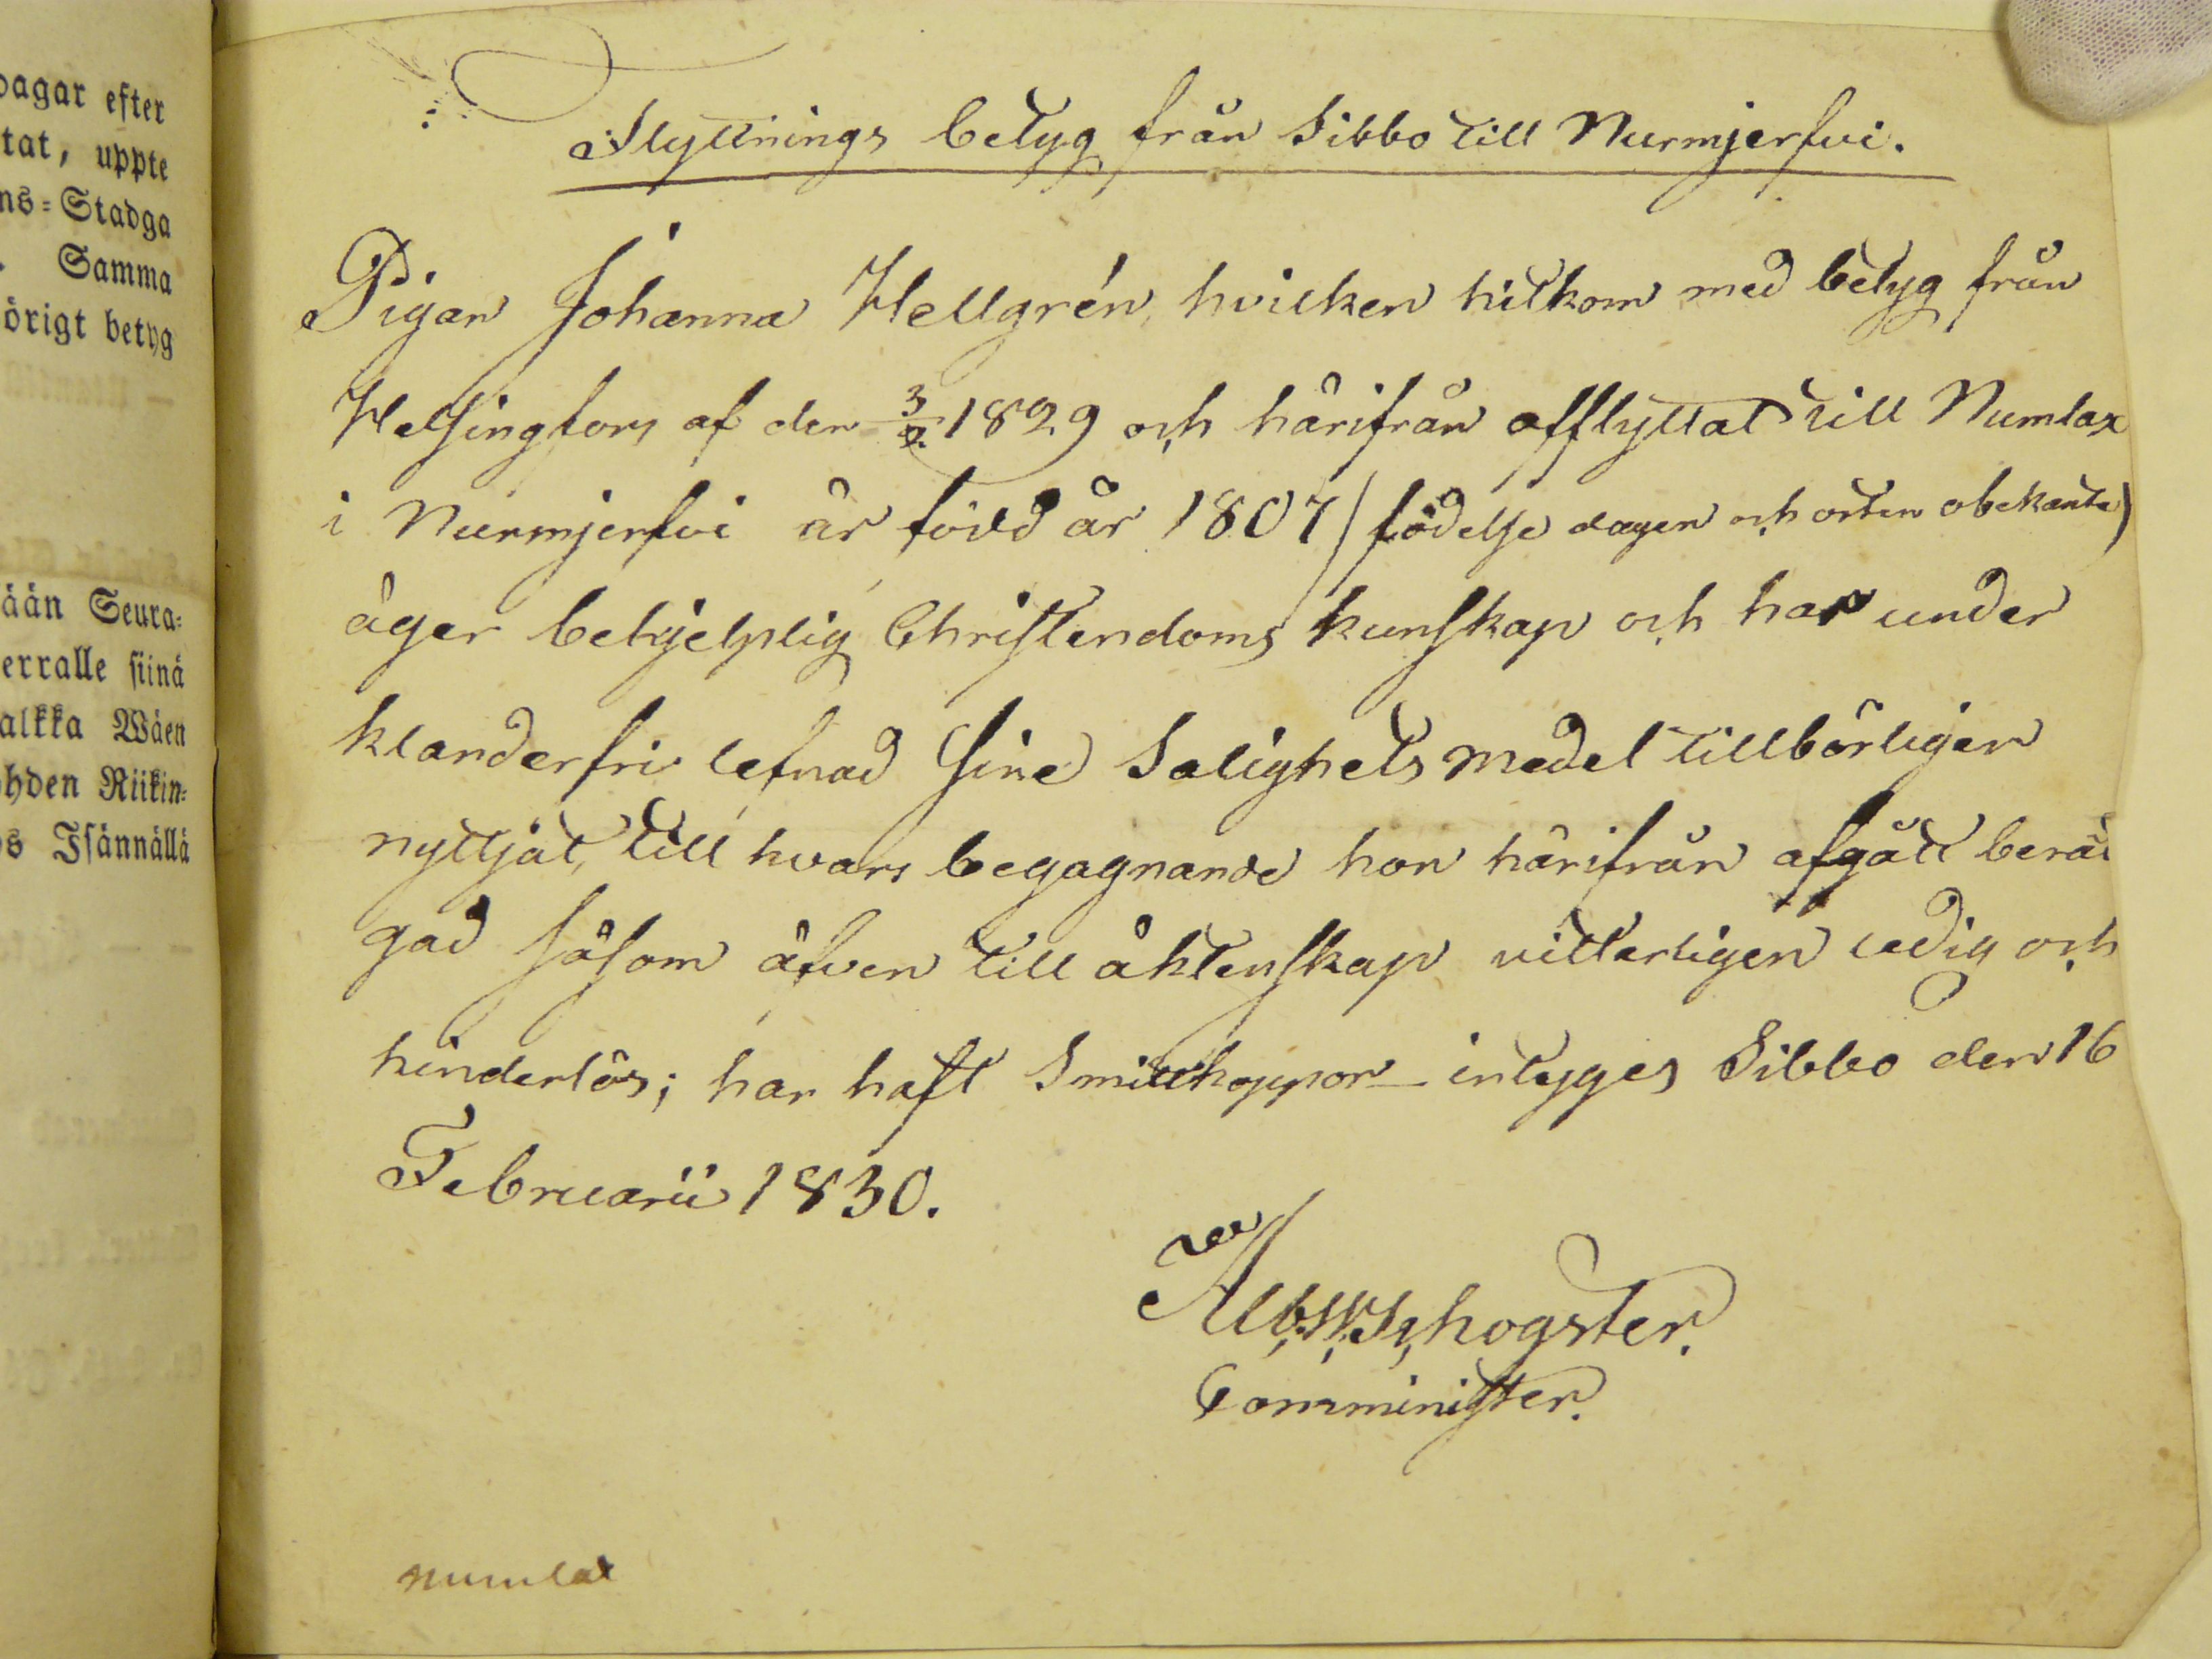 dagar efter
tat, uppte
ns-Stadga
Samma
örigt betyg
ään Seura-
erralle siinä
alkka Wäen
hden Riikin-
s Isännällä
Flyttnings betyg från Sibbo till Nurmjerfvi.
Pigan Johanna Hellgrén, hvilken hitkom med betyg från
Helsingfors af den 3/2 1829 och härifrån afflyttat till Numlax
i Nurmjerfvi är född år 1807 (födelse dagen och orten obekante)
äger behjelplig Christendoms kunskap och har under
klanderfri lefnad sine Salighets medel tillbörligen
nyttjat, till hvars begagnande hon härifrån afgått berät
gad såsom äfven till äktenskap vitterligen ledig och
hinderlös; har haft Smittkoppor – intygges Sibbo den 16
Februarii 1830.
Schogster.
Comminister.
Numlax